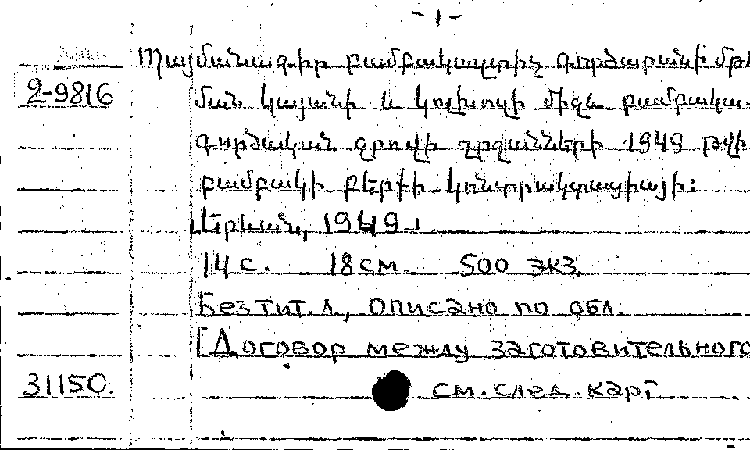 - 1 -
Պայմանագիր բամբակազտիչ գործարանի մթե
2-9816
ման կայանի և կոլխոզի միջև բամբակա-
գործական ջրովի շրջանների 1949 թվի
բամբակի բերքի կոնտրակտացիայի:
Երևան, 1949.
14 с. 18 см. 500 экз.
Без тит. л., описано по обл.
[Договор между заготовительного
31150. см. след. карт